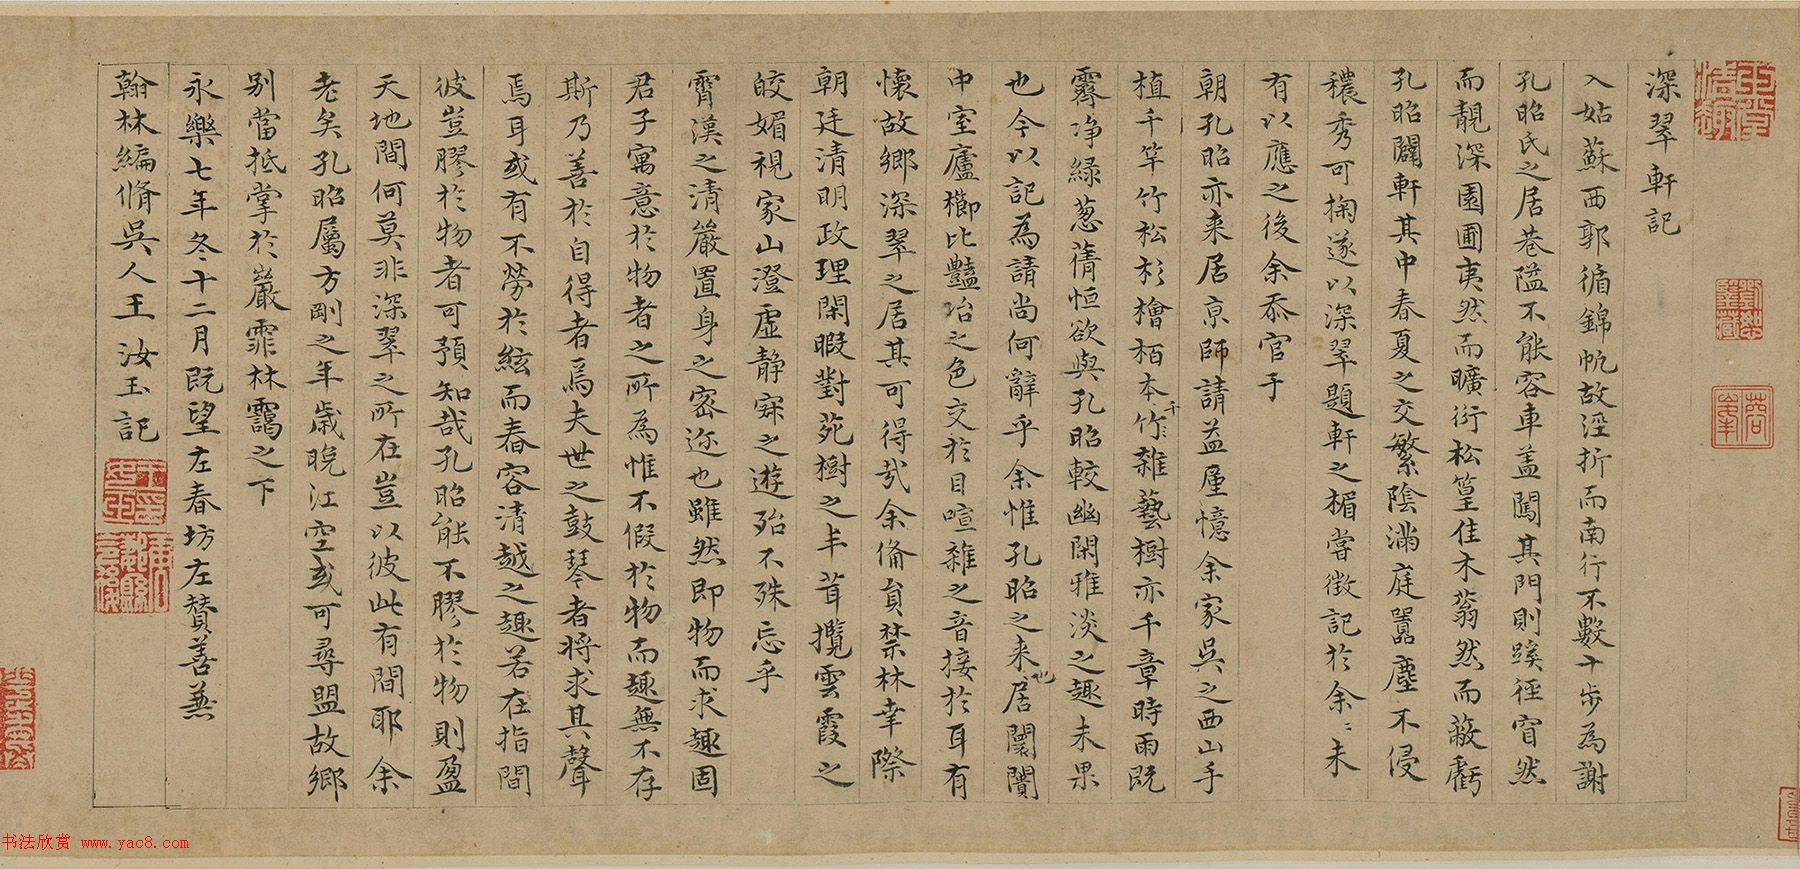 深翠軒記
入姑蘇西郭循錦帆故涇折而南行不數十步為謝
孔昭氏之居巷隘不能容車盖闖其門則蹊徑窅然
而靚深園圃夷然而曠衍松篁佳木蓊然而蔽虧
孔昭闢軒其中春夏之交繁陰滿庭囂塵不侵
穠秀可掬遂以深翠題軒之楣嘗徵記於余〻未
有以應之後余忝官于
朝孔昭亦来居京師請益屢憶余家吳之西山手
植千竿竹松杉檜栢本竹〻千雜藝樹亦千章時雨既
霽净緑葱蒨恒欲與孔昭較幽閑雅淡之趣未果
也今以記為請尚何辭乎余惟孔昭之来居也闤闠
中室廬櫛比豔冶之色交於目喧雜之音接於耳有
懷故鄉深翠之居其可得㢤余俻貟禁林幸際
朝廷清明政理閑暇對苑樹之丰茸攬雲霞之
皎媚視家山澄虛静寐之遊殆不殊忘乎
霄漢之清嚴置身之密迩也雖然即物而求趣固
君子寓意於物者之所為惟不假於物而趣無不存
斯乃善於自得者焉夫世之鼓琴者將求其聲
焉耳或有不勞於絃而舂容清越之趣若在指間
彼豈膠於物者可預知哉孔昭能不膠於物則盈
天地間何莫非深翠之所在豈以彼此有間耶余
老矣孔昭屬方剛之年歲晚江空或可尋盟故鄉
别當抵掌於巖霏林靄之下
永樂七年冬十二月既望左春坊左贊善兼
翰林編脩吳人王汝玉記
书法欣赏 www.yac8.com